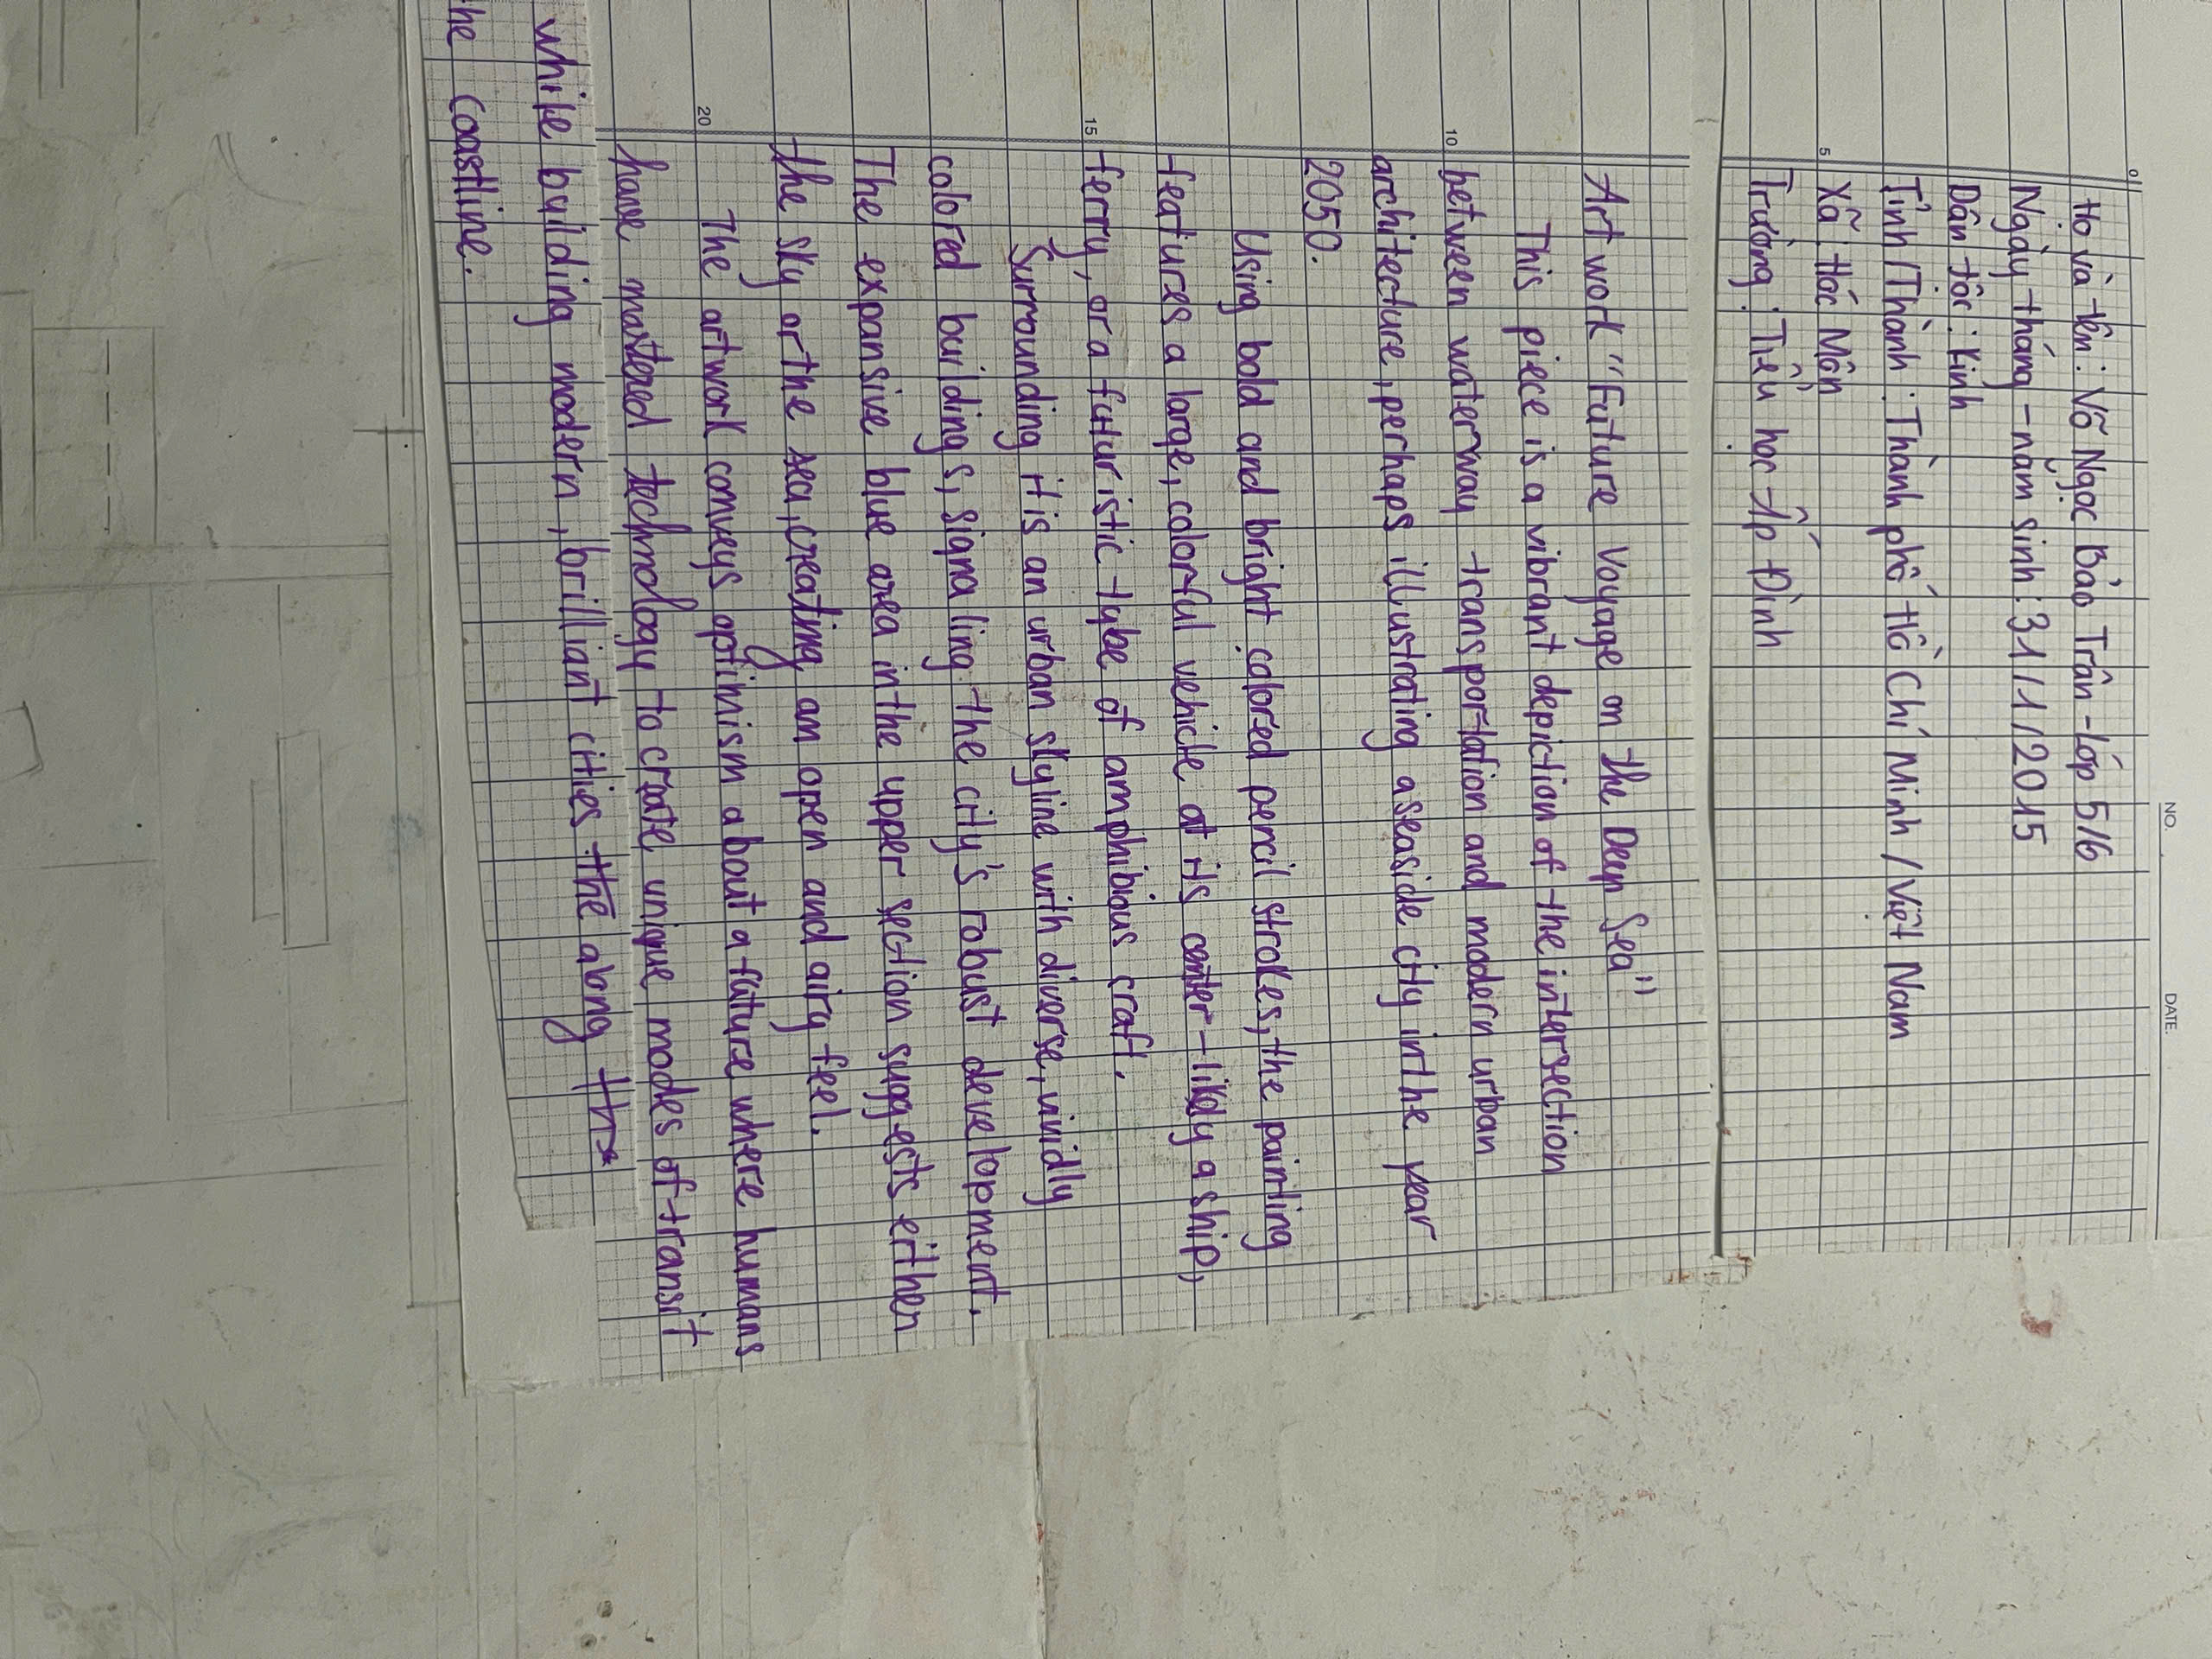 NO.
DATE.
Họ và tên: Võ Ngọc Bảo Trân - Lớp 5/6
Ngày tháng - năm sinh: 31/1/2015
Dân tộc: Kinh
Tỉnh/Thành: Thành phố Hồ Chí Minh / Việt Nam
5
Xã: Hóc Môn
Trường: Tiểu học Ấp Đình
Art work "Future Voyage on the Deep Sea"
This piece is a vibrant depiction of the intersection
10
between waterway transportation and modern urban
architecture, perhaps illustrating a seaside city in the year
2050.
Using bold and bright colored pencil strokes, the painting
features a large, colorful vehicle at its center - likely a ship,
15
ferry, or a futuristic tybe of amphibious craft.
Surrounding it is an urban skyline with diverse, vividly
colored buildings, signaling the city's robust development.
The expansive blue area in the upper section suggests either
the sky or the sea, creating an open and airy feel.
20
The artwork conveys optimism about a future where humans
have mastered technology to create unique modes of transit
while building modern, brilliant cities the along the
he coastline.